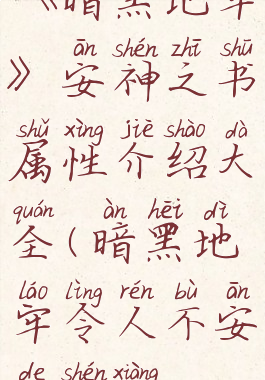 《暗黑地牢
ān shén zhī shū
》安神之书
shǔ xìng jiè shào dà
属性介绍大
quán àn hēi dì
全(暗黑地
láo lìng rén bù ān
牢令人不安
de shén xiàng